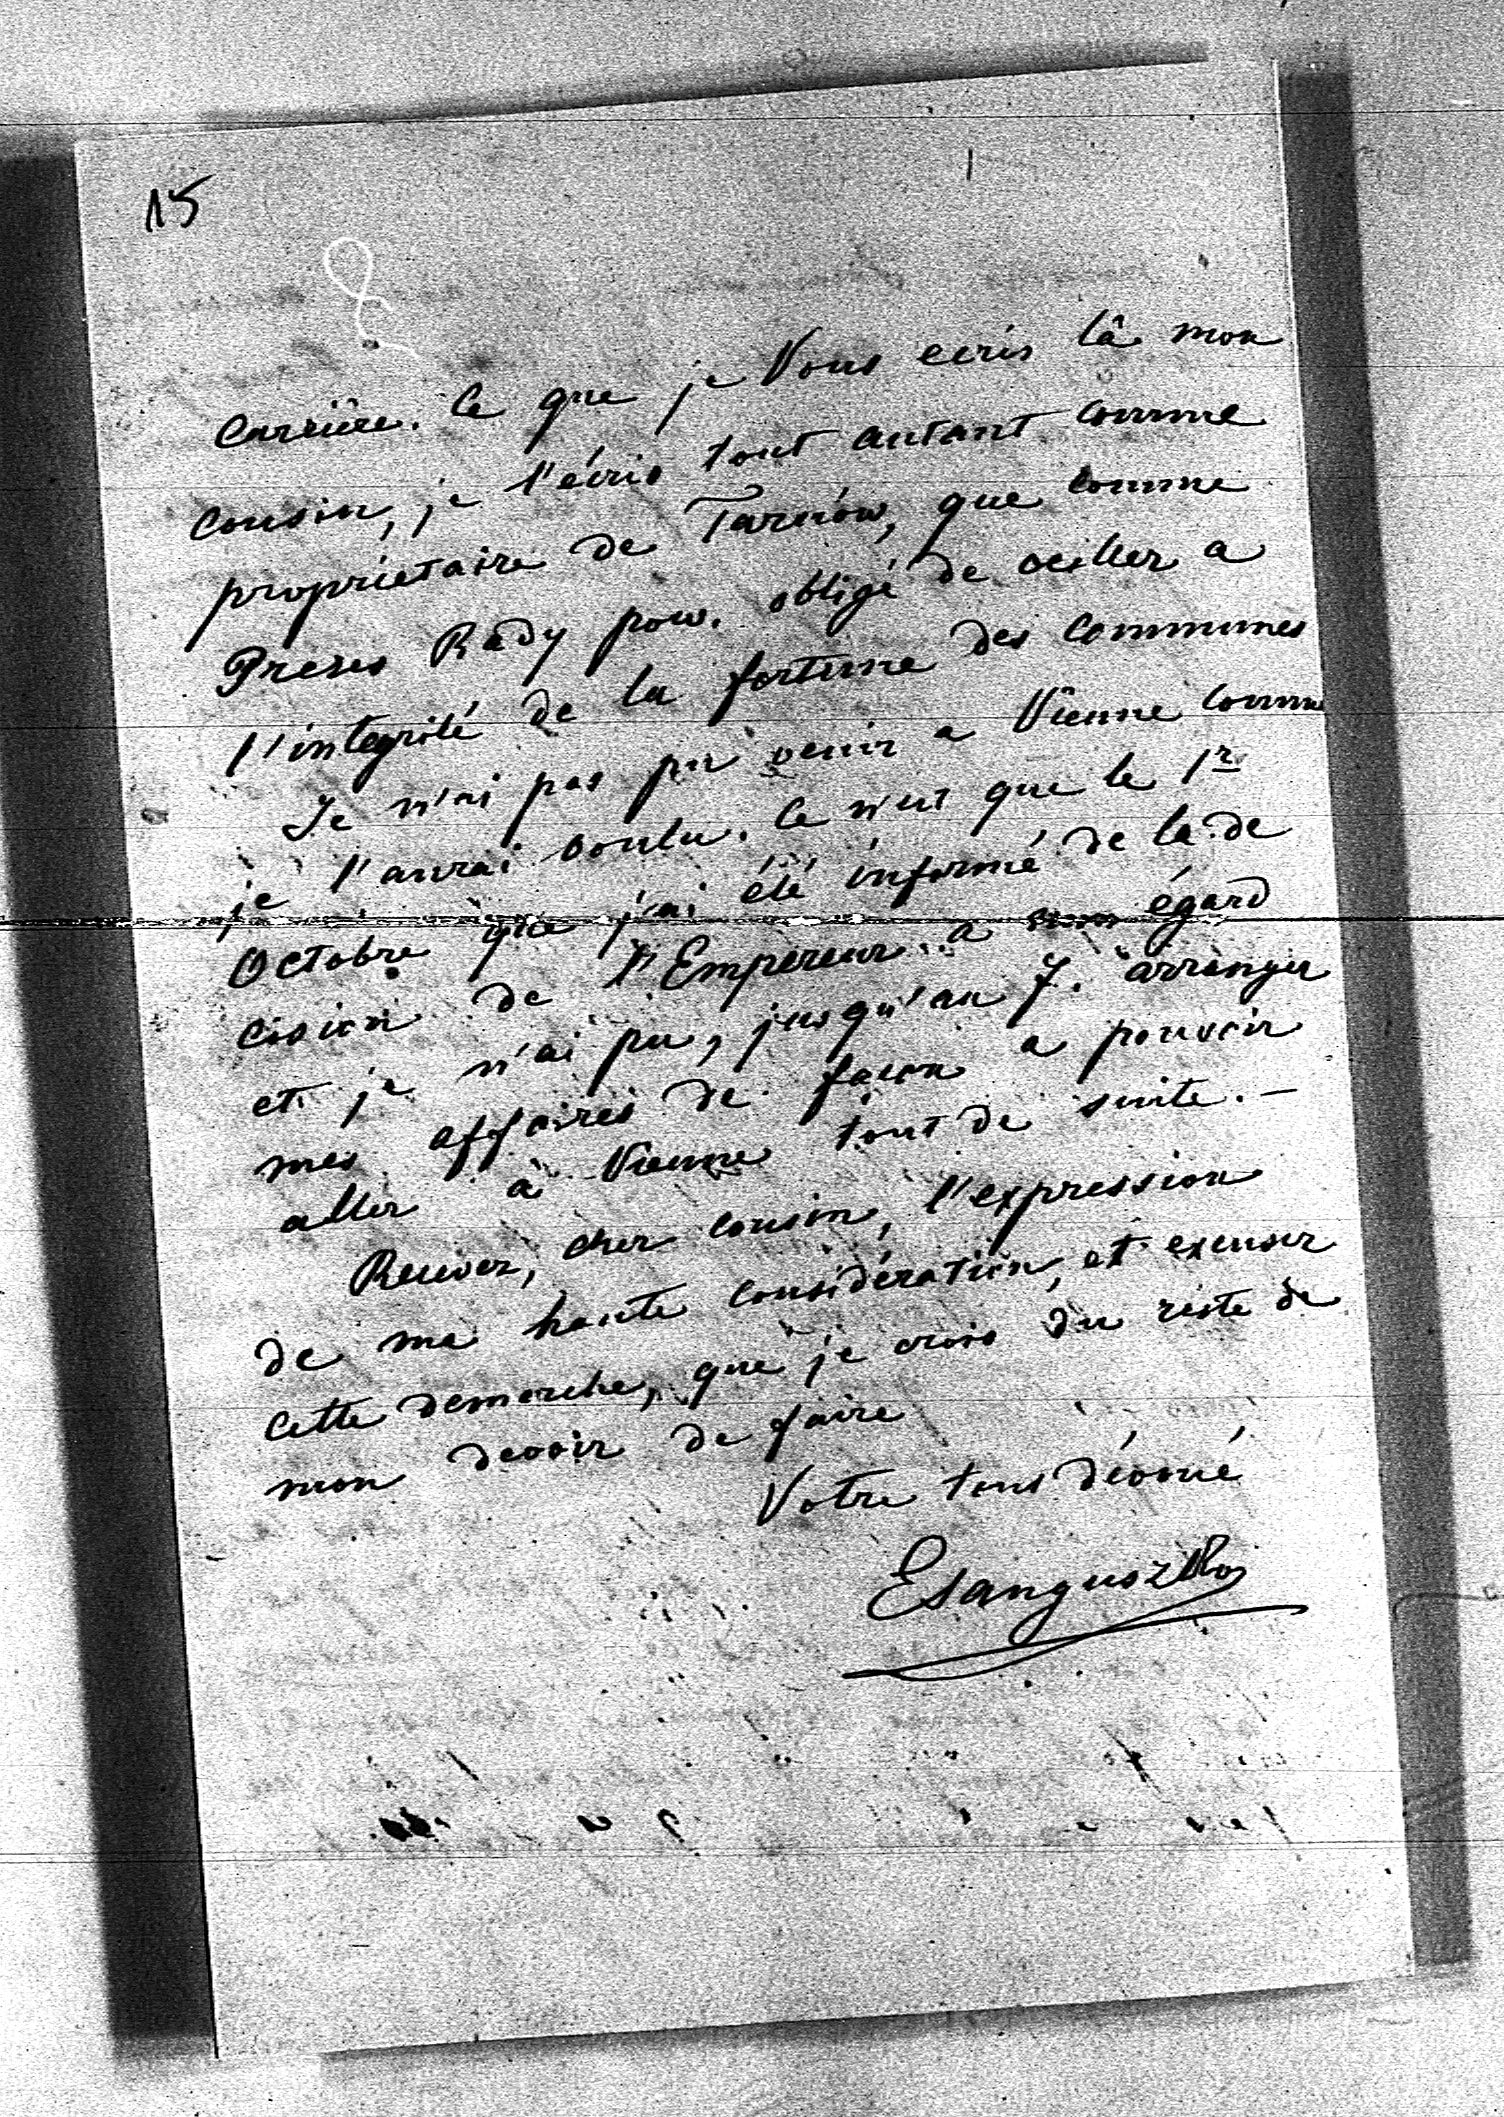 15
carrière. Ce que je Vous ecris là mon
cousin, je l'écris tout autant comme
propriétaire de Tarnów, que comme
Preses Rady pow. obligé de veiller a
l'integrité de la fortune des communes
Je n'ai pas pu venir a Vienne comme
je l'aurai voulu. Ce n'est que le 1r
Octobre que j'ai été informé de la de
cision de l'Empereur a mon égard
et je n'ai pu, jusqu'au 7. arranger
mes affaires de facon a pouvoir
aller à Vienne tout de suite. —
Recevez, cher cousin, l'expression
de ma haute considération, et excuser
cette demarche, que je crois du reste de
mon devoir de faire
Votre tout dévoué
ESanguszko